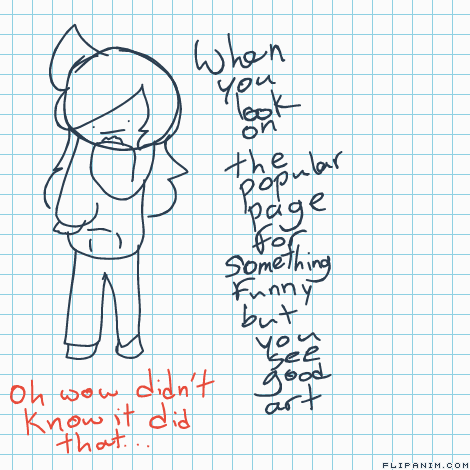 When
you
look
on
the
popular
page
for
something
funny
but
you
see
good
art
Oh wow didn't
know it did
that...
FLIPANIM.COM